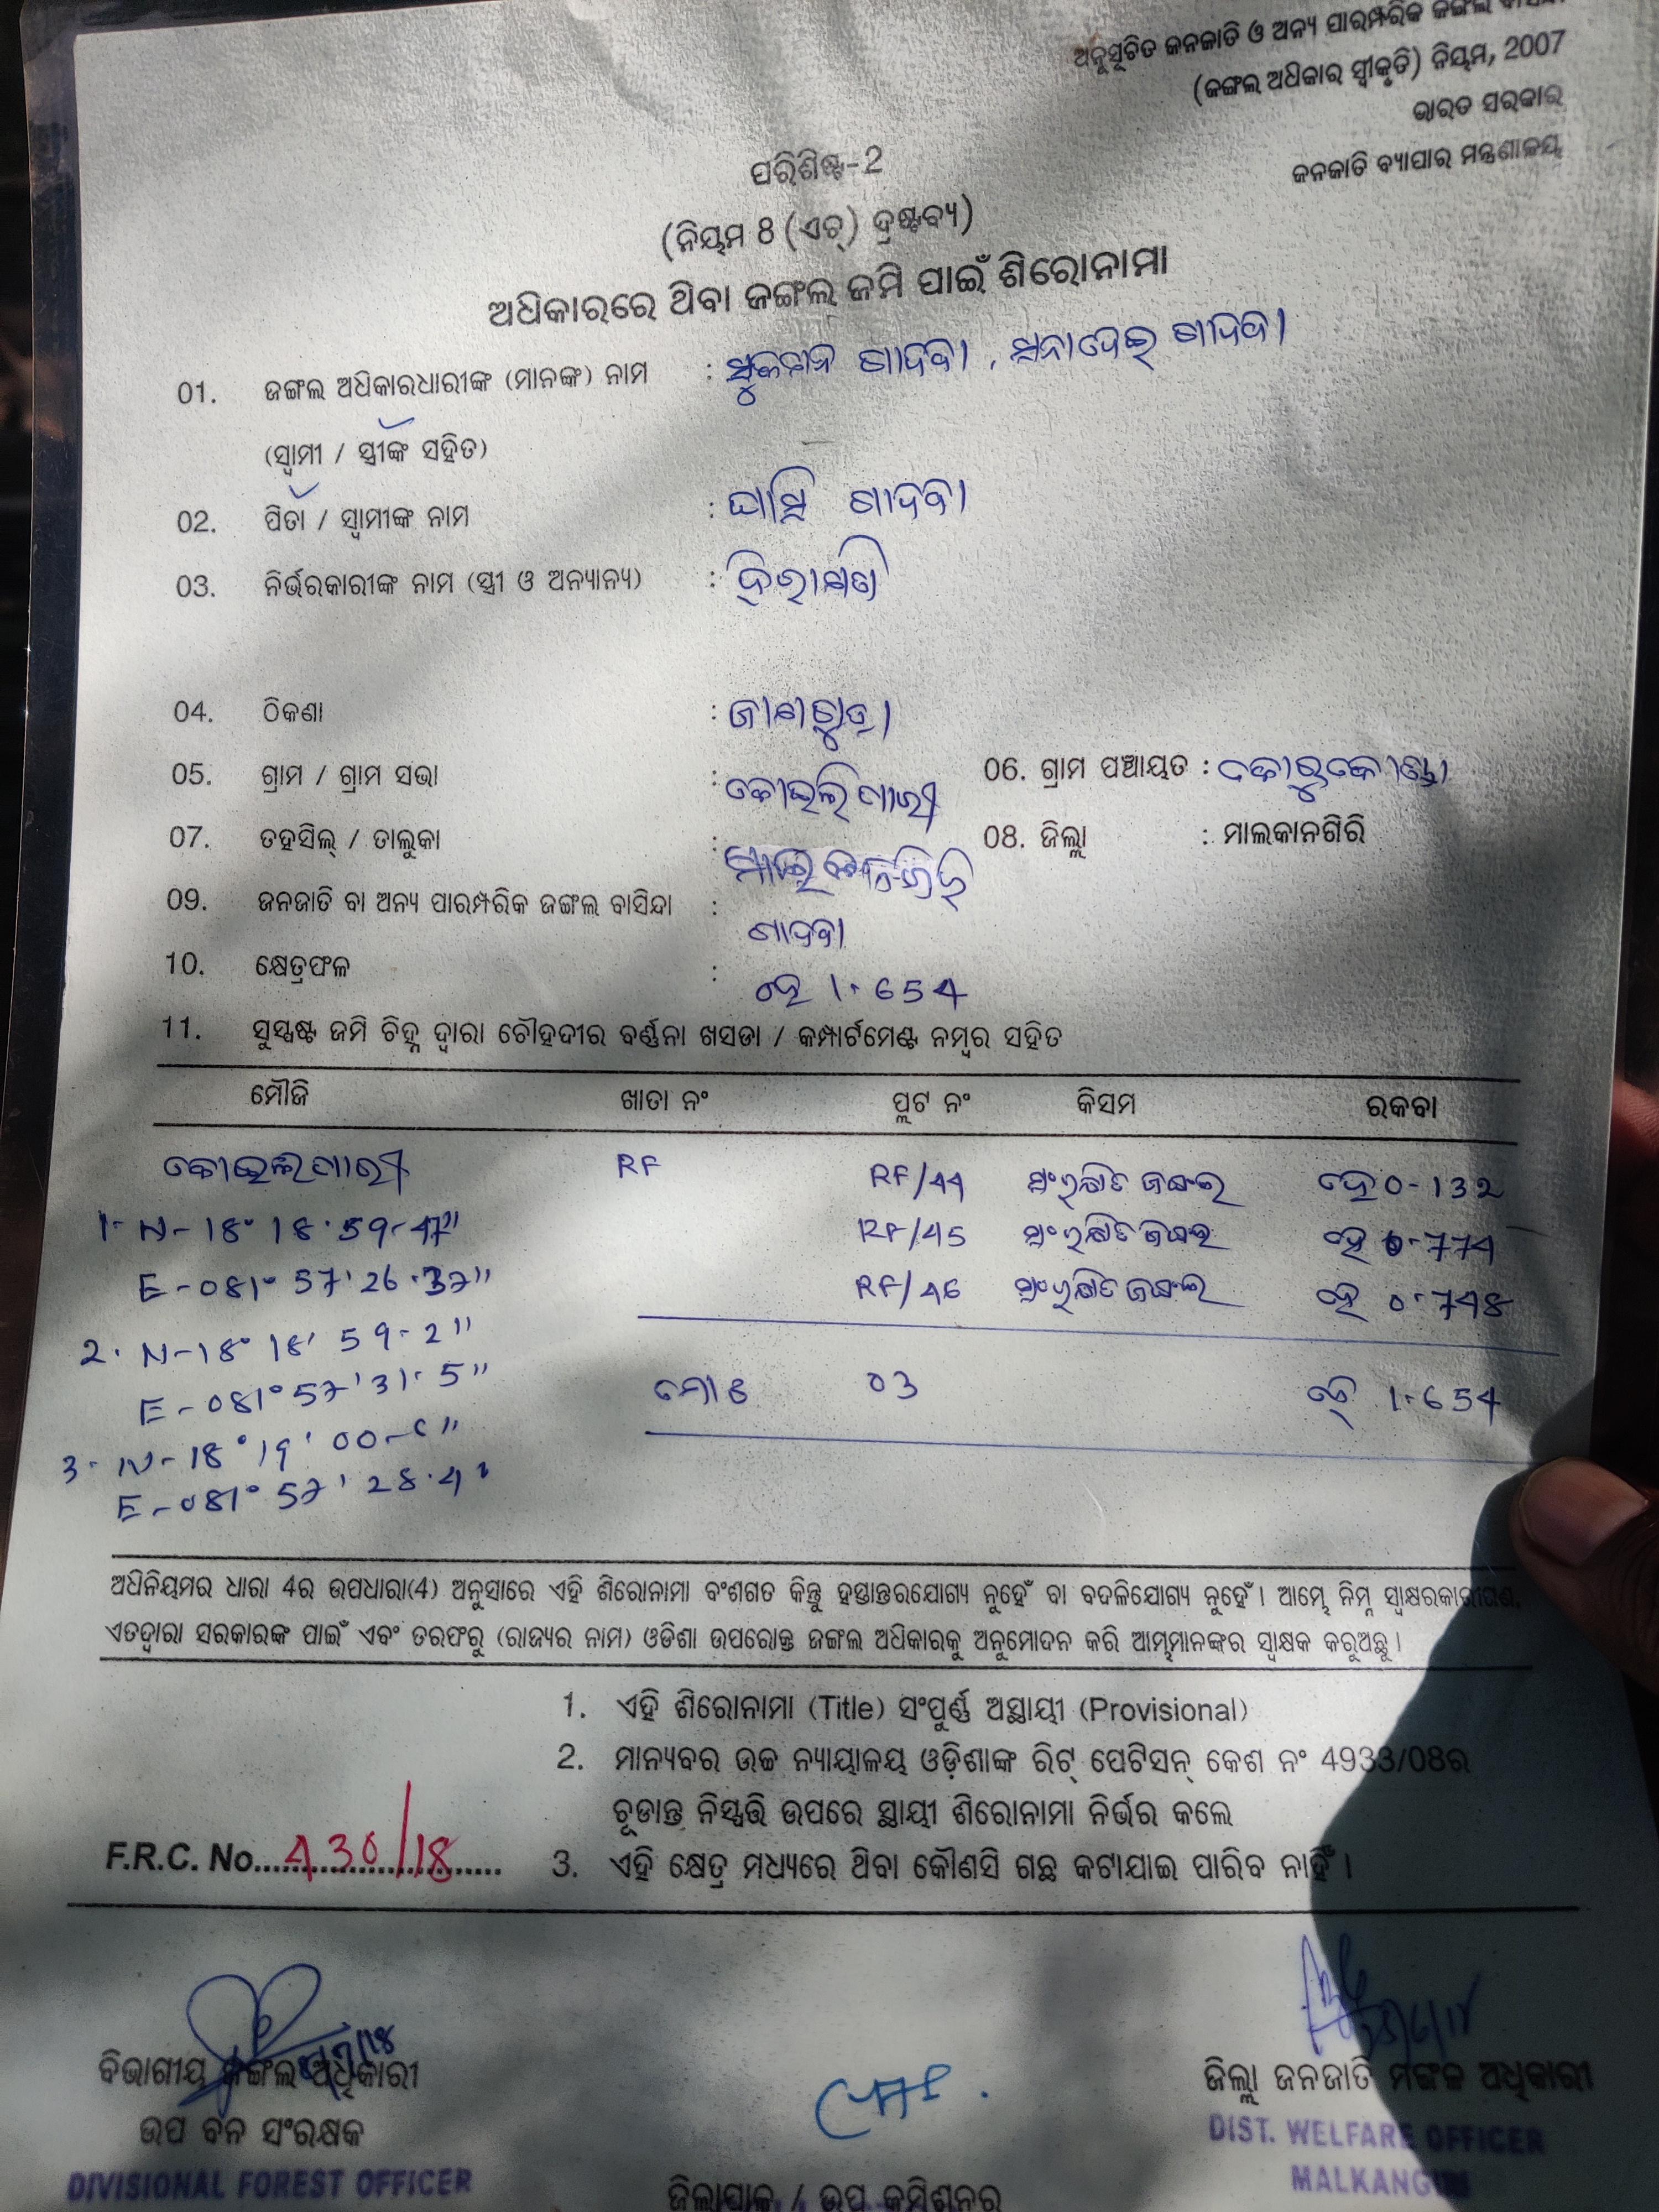 ଅନୁସୂଚିତ ଜନଜାତି ଓ ଅନ୍ୟ ପାରମ୍ପରିକ ଜଙ୍ଗଲ ବାସିନ୍ଦା
(ଜଙ୍ଗଲ ଅଧିକାର ସ୍ୱୀକୃତି) ନିୟମ, 2007
ଭାରତ ସରକାର
ଜନଜାତି ବ୍ୟାପାର ମନ୍ତ୍ରଣାଳୟ
ପରିଶିଷ୍ଟ-2
(ନିୟମ 8 (ଏଚ୍) ଦ୍ରଷ୍ଟବ୍ୟ)
ଅଧିକାରରେ ଥିବା ଜଙ୍ଗଲ ଜମି ପାଇଁ ଶିରୋନାମା
01. ଜଙ୍ଗଲ ଅଧିକାରଧାରୀଙ୍କ (ମାନଙ୍କ) ନାମ :
(ସ୍ୱାମୀ / ସ୍ତ୍ରୀଙ୍କ ସହିତ)
02. ପିତା / ସ୍ୱାମୀଙ୍କ ନାମ :
03. ନିର୍ଭରକାରୀଙ୍କ ନାମ (ସ୍ତ୍ରୀ ଓ ଅନ୍ୟାନ୍ୟ) :
04. ଠିକଣା :
05. ଗ୍ରାମ / ଗ୍ରାମ ସଭା : 06. ଗ୍ରାମ ପଞ୍ଚାୟତ :
07. ତହସିଲ୍ / ତାଲୁକା : ମାଲକାନଗିରି 08. ଜିଲ୍ଲା : ମାଲକାନଗିରି
09. ଜନଜାତି ବା ଅନ୍ୟ ପାରମ୍ପରିକ ଜଙ୍ଗଲ ବାସିନ୍ଦା :
10. କ୍ଷେତ୍ରଫଳ : ହେ 1.654
11. ସୁସ୍ପଷ୍ଟ ଜମି ଚିହ୍ନ ଦ୍ୱାରା ଚୌହଦୀର ବର୍ଣ୍ଣନା ଖସଡା / କମ୍ପାର୍ଟମେଣ୍ଟ ନମ୍ବର ସହିତ
ମୌଜି ଖାତା ନଂ ପ୍ଲଟ ନଂ କିସମ ରକବା
RF RF/44 ସଂରକ୍ଷିତ ଜଙ୍ଗଲ ହେ 0-132
1- N-18° 18' 59-47" RF/45 ସଂରକ୍ଷିତ ଜଙ୍ଗଲ ହେ 0-774
E-081° 57' 26.37" RF/46 ସଂରକ୍ଷିତ ଜଙ୍ଗଲ ହେ 0.748
2. N-18° 18' 59-2"
E-081° 57' 31.5" ମୋଟ 03 ହେ 1.654
3- N-18° 19' 00-
E-081° 57' 28.4"
ଅଧିନିୟମର ଧାରା 4ର ଉପଧାରା(4) ଅନୁସାରେ ଏହି ଶିରୋନାମା ବଂଶଗତ କିନ୍ତୁ ହସ୍ତାନ୍ତରଯୋଗ୍ୟ ନୁହେଁ ବା ବଦଳିଯୋଗ୍ୟ ନୁହେଁ। ଆମ୍ଭେ ନିମ୍ନ ସ୍ୱାକ୍ଷରକାରୀଗଣ,
ଏତଦ୍ୱାରା ସରକାରଙ୍କ ପାଇଁ ଏବଂ ତରଫରୁ (ରାଜ୍ୟର ନାମ) ଓଡିଶା ଉପରୋକ୍ତ ଜଙ୍ଗଲ ଅଧିକାରକୁ ଅନୁମୋଦନ କରି ଆମ୍ଭମାନଙ୍କର ସ୍ୱାକ୍ଷକ କରୁଅଛୁ।
1. ଏହି ଶିରୋନାମା (Title) ସଂପୂର୍ଣ୍ଣ ଅସ୍ଥାୟୀ (Provisional)
2. ମାନ୍ୟବର ଉଚ୍ଚ ନ୍ୟାୟାଳୟ ଓଡ଼ିଶାଙ୍କ ରିଟ୍ ପେଟିସନ୍ କେଶ ନଂ 4933/08ର
ଚୂଡାନ୍ତ ନିସ୍ପତ୍ତି ଉପରେ ସ୍ଥାୟୀ ଶିରୋନାମା ନିର୍ଭର କଲେ
F.R.C. No. 430/18
3. ଏହି କ୍ଷେତ୍ର ମଧ୍ୟରେ ଥିବା କୌଣସି ଗଛ କଟାଯାଇ ପାରିବ ନାହିଁ।
ବିଭାଗୀୟ ଜଙ୍ଗଲ ଅଧିକାରୀ
ଉପ ବନ ସଂରକ୍ଷକ
DIVISIONAL FOREST OFFICER
ଜିଲ୍ଲା ଜନଜାତି ମଙ୍ଗଳ ଅଧିକାରୀ
DIST. WELFARE OFFICER
MALKANGIRI
ଜିଲ୍ଲାପାଳ / ଉପ କମିଶନର